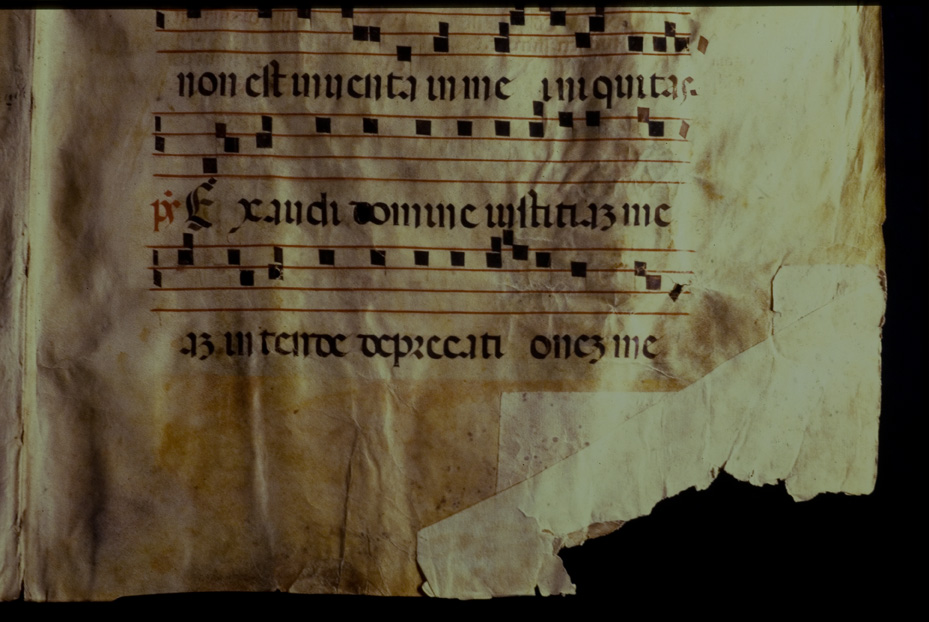 non est inuenta in me iniquitas.
ps Exaudi domine iustitiaʒ me
aʒ intende deprecationeʒ me